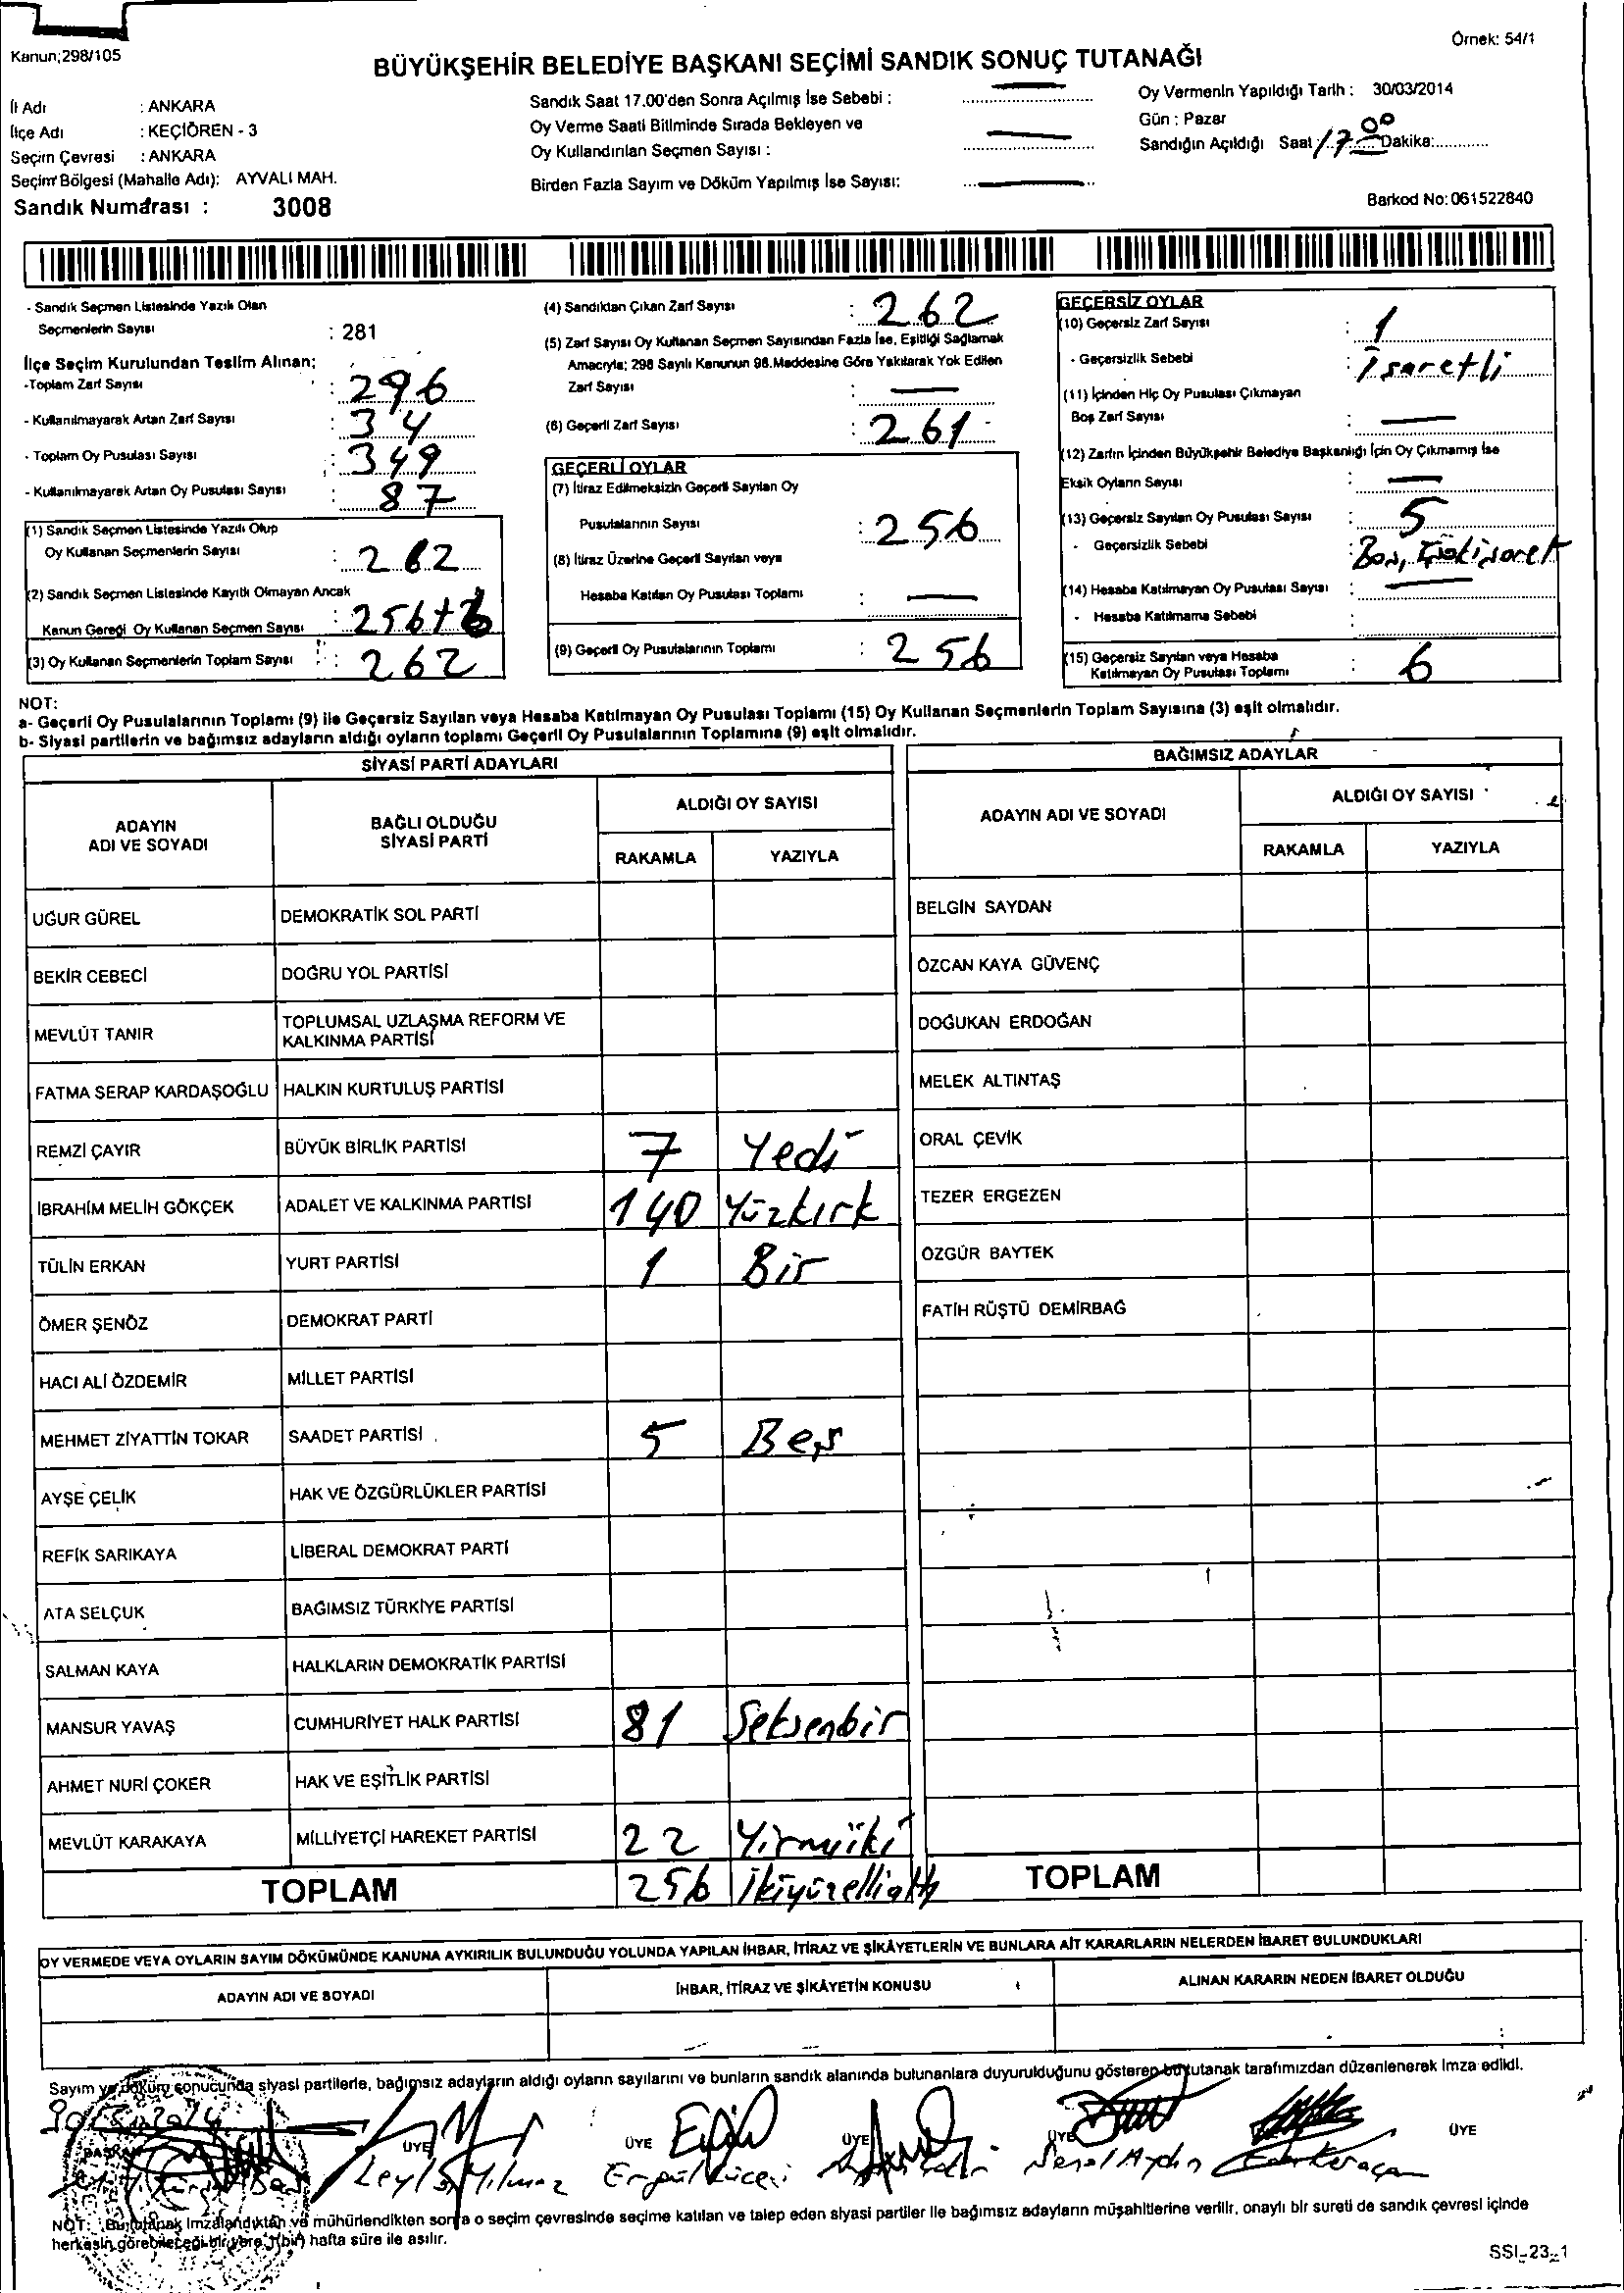 Kanun;298/105
Örnek: 54/1
BÜYÜKŞEHİR BELEDİYE BAŞKANI SEÇİMİ SANDIK SONUÇ TUTANAĞI
İl Adı : ANKARA
İlçe Adı : KEÇİÖREN - 3
Seçim Çevresi : ANKARA
Seçim Bölgesi (Mahalle Adı): AYVALI MAH.
Sandık Numarası : 3008
Sandık Saat 17.00'den Sonra Açılmış İse Sebebi :
Oy Verme Saati Bitiminde Sırada Bekleyen ve
Oy Kullandırılan Seçmen Sayısı :
Birden Fazla Sayım ve Döküm Yapılmış İse Sayısı:
Oy Vermenin Yapıldığı Tarih : 30/03/2014
Gün : Pazar
Sandığın Açıldığı Saat 17 00 Dakika:
Barkod No: 061522840
- Sandık Seçmen Listesinde Yazılı Olan
Seçmenlerin Sayısı : 281
İlçe Seçim Kurulundan Teslim Alınan:
-Toplam Zarf Sayısı : 296
- Kullanılmayarak Artan Zarf Sayısı : 34
- Toplam Oy Pusulası Sayısı : 349
- Kullanılmayarak Artan Oy Pusulası Sayısı : 87
(1) Sandık Seçmen Listesinde Yazılı Olup
Oy Kullanan Seçmenlerin Sayısı : 262
(2) Sandık Seçmen Listesinde Kayıtlı Olmayan Ancak
Kanun Gereği Oy Kullanan Seçmen Sayısı : 256+6
(3) Oy Kullanan Seçmenlerin Toplam Sayısı : 262
(4) Sandıktan Çıkan Zarf Sayısı : 262
(5) Zarf Sayısı Oy Kullanan Seçmen Sayısından Fazla İse, Eşitliği Sağlamak
Amacıyla; 298 Sayılı Kanunun 98.Maddesine Göre Yakılarak Yok Edilen
Zarf Sayısı :
(6) Geçerli Zarf Sayısı : 261
GEÇERLİ OYLAR
(7) İtiraz Edilmeksizin Geçerli Sayılan Oy
Pusulalarının Sayısı : 256
(8) İtiraz Üzerine Geçerli Sayılan veya
Hesaba Katılan Oy Pusulası Toplamı :
(9) Geçerli Oy Pusulalarının Toplamı : 256
GEÇERSİZ OYLAR
(10) Geçersiz Zarf Sayısı : 1
- Geçersizlik Sebebi : İsaretli
(11) İçinden Hiç Oy Pusulası Çıkmayan
Boş Zarf Sayısı :
(12) Zarfın İçinden Büyükşehir Belediye Başkanlığı İçin Oy Çıkmamış İse
Eksik Oyların Sayısı :
(13) Geçersiz Sayılan Oy Pusulası Sayısı : 5
- Geçersizlik Sebebi : Boş,
(14) Hesaba Katılmayan Oy Pusulası Sayısı :
- Hesaba Katılmama Sebebi :
(15) Geçersiz Sayılan veya Hesaba
Katılmayan Oy Pusulası Toplamı : 6
NOT:
a- Geçerli Oy Pusulalarının Toplamı (9) ile Geçersiz Sayılan veya Hesaba Katılmayan Oy Pusulası Toplamı (15) Oy Kullanan Seçmenlerin Toplam Sayısına (3) eşit olmalıdır.
b- Siyasi partilerin ve bağımsız adayların aldığı oyların toplamı Geçerli Oy Pusulalarının Toplamına (9) eşit olmalıdır.
SİYASİ PARTİ ADAYLARI
ADAYIN
ADI VE SOYADI
BAĞLI OLDUĞU
SİYASİ PARTİ
ALDIĞI OY SAYISI
RAKAMLA YAZIYLA
UĞUR GÜREL DEMOKRATİK SOL PARTİ
BEKİR CEBECİ DOĞRU YOL PARTİSİ
MEVLÜT TANIR TOPLUMSAL UZLAŞMA REFORM VE
KALKINMA PARTİSİ
FATMA SERAP KARDAŞOĞLU HALKIN KURTULUŞ PARTİSİ
REMZİ ÇAYIR BÜYÜK BİRLİK PARTİSİ 7 Yedi
İBRAHİM MELİH GÖKÇEK ADALET VE KALKINMA PARTİSİ 140 Yüzkırk
TÜLİN ERKAN YURT PARTİSİ 1 Bir
ÖMER ŞENÖZ DEMOKRAT PARTİ
HACI ALİ ÖZDEMİR MİLLET PARTİSİ
MEHMET ZİYATTİN TOKAR SAADET PARTİSİ 5 Beş
AYŞE ÇELİK HAK VE ÖZGÜRLÜKLER PARTİSİ
REFİK SARIKAYA LİBERAL DEMOKRAT PARTİ
ATA SELÇUK BAĞIMSIZ TÜRKİYE PARTİSİ
SALMAN KAYA HALKLARIN DEMOKRATİK PARTİSİ
MANSUR YAVAŞ CUMHURİYET HALK PARTİSİ 81 Seksenbir
AHMET NURİ ÇOKER HAK VE EŞİTLİK PARTİSİ
MEVLÜT KARAKAYA MİLLİYETÇİ HAREKET PARTİSİ 22 Yirmiiki
TOPLAM 256 İkiyüzellialtı
BAĞIMSIZ ADAYLAR
ADAYIN ADI VE SOYADI
ALDIĞI OY SAYISI
RAKAMLA YAZIYLA
BELGİN SAYDAN
ÖZCAN KAYA GÜVENÇ
DOĞUKAN ERDOĞAN
MELEK ALTINTAŞ
ORAL ÇEVİK
TEZER ERGEZEN
ÖZGÜR BAYTEK
FATİH RÜŞTÜ DEMİRBAĞ
TOPLAM
OY VERMEDE VEYA OYLARIN SAYIM DÖKÜMÜNDE KANUNA AYKIRILIK BULUNDUĞU YOLUNDA YAPILAN İHBAR, İTİRAZ VE ŞİKÂYETLERİN VE BUNLARA AİT KARARLARIN NELERDEN İBARET BULUNDUKLARI
ADAYIN ADI VE SOYADI
İHBAR, İTİRAZ VE ŞİKÂYETİN KONUSU
ALINAN KARARIN NEDEN İBARET OLDUĞU
Sayım ve döküm sonucunda siyasi partilerle, bağımsız adayların aldığı oyların sayılarını ve bunların sandık alanında bulunanlara duyurulduğunu gösterep bu tutanak tarafımızdan düzenlenerek imza edildi.
BAŞKAN ÜYE ÜYE ÜYE ÜYE ÜYE
Leyla Yılmaz Ergül Aydın
NOT: Bu tutanak imzalandıktan ve mühürlendikten sonra o seçim çevresinde seçime katılan ve talep eden siyasi partiler ile bağımsız adayların müşahitlerine verilir, onaylı bir sureti de sandık çevresi içinde
herkesin görebileceği bir yere 1(bir) hafta süre ile asılır.
SSI_23_1